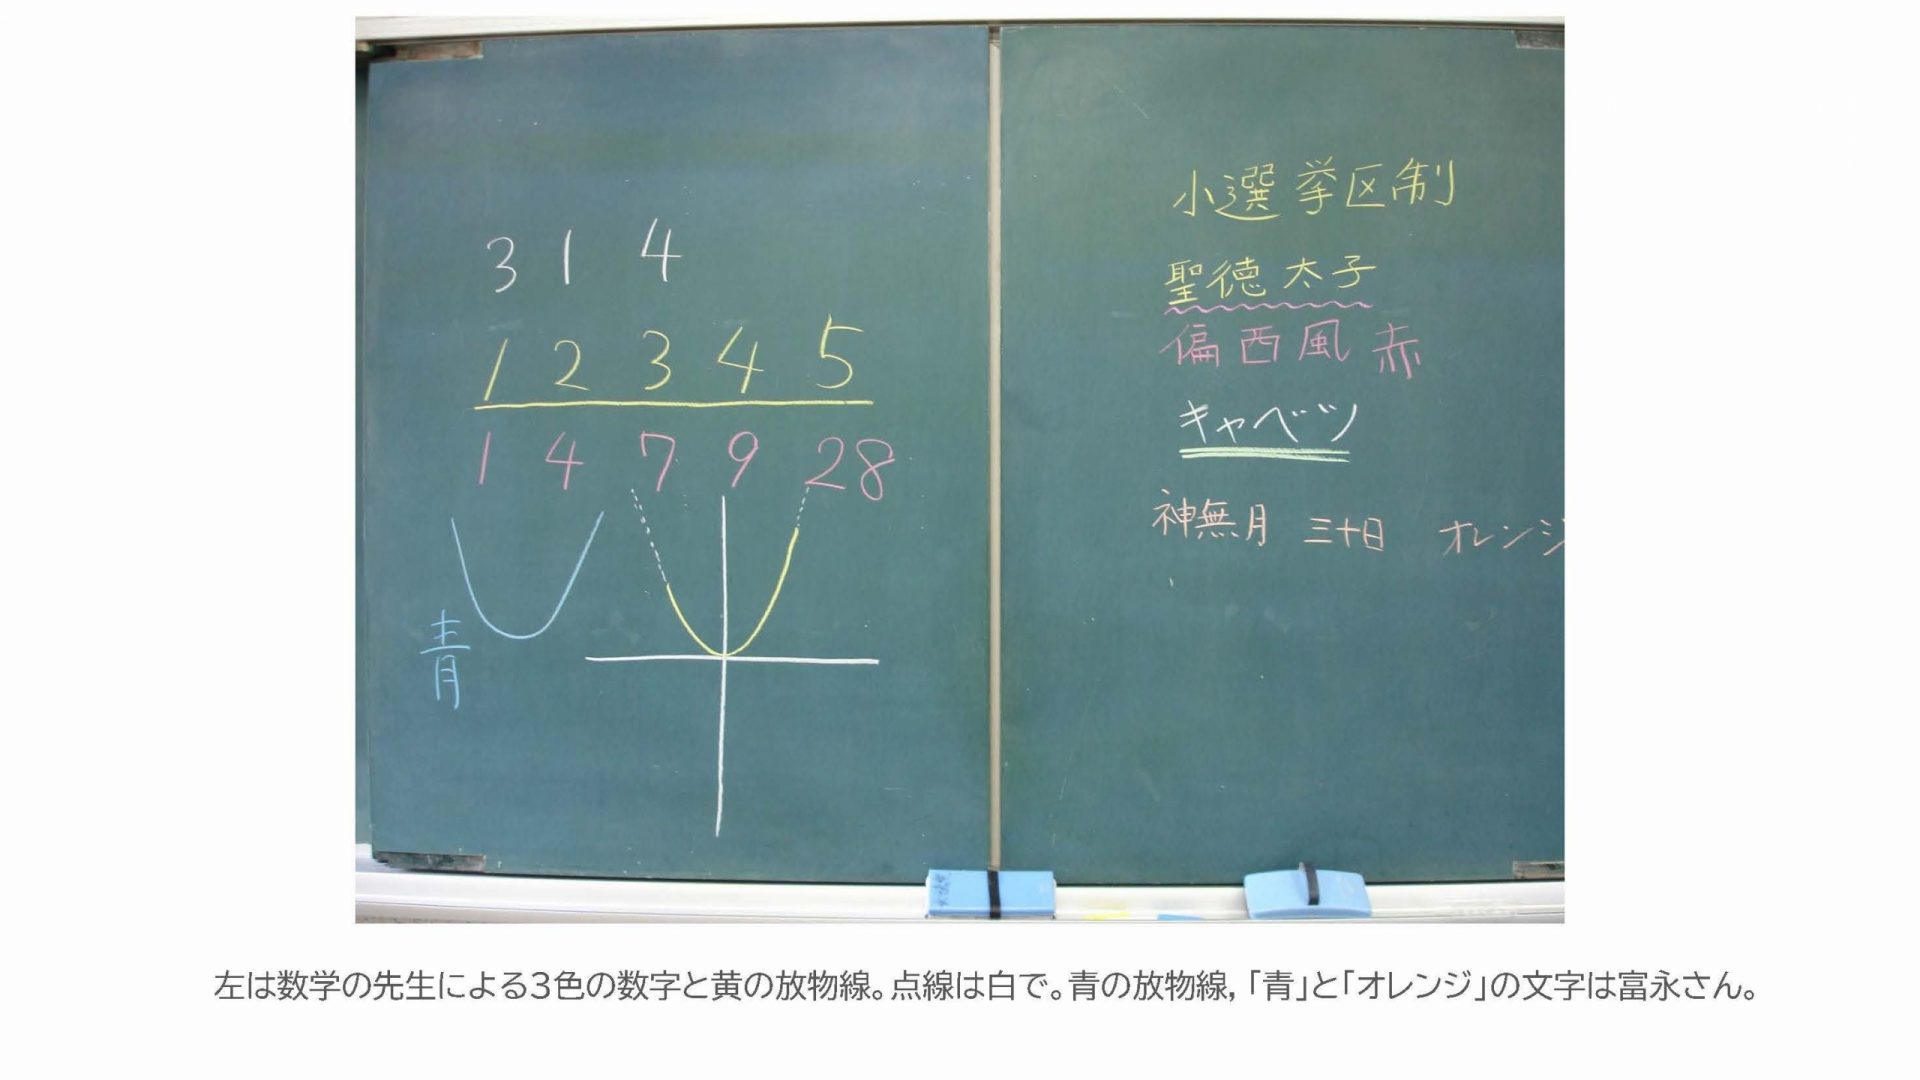 3 1 4
1 2 3 4 5
1 4 7 9 28
青
小選挙区制
聖徳太子
偏西風 赤
キャベツ
神無月 三十日 オレンジ
左は数学の先生による3色の数字と黄の放物線。点線は白で。青の放物線,「青」と「オレンジ」の文字は富永さん。